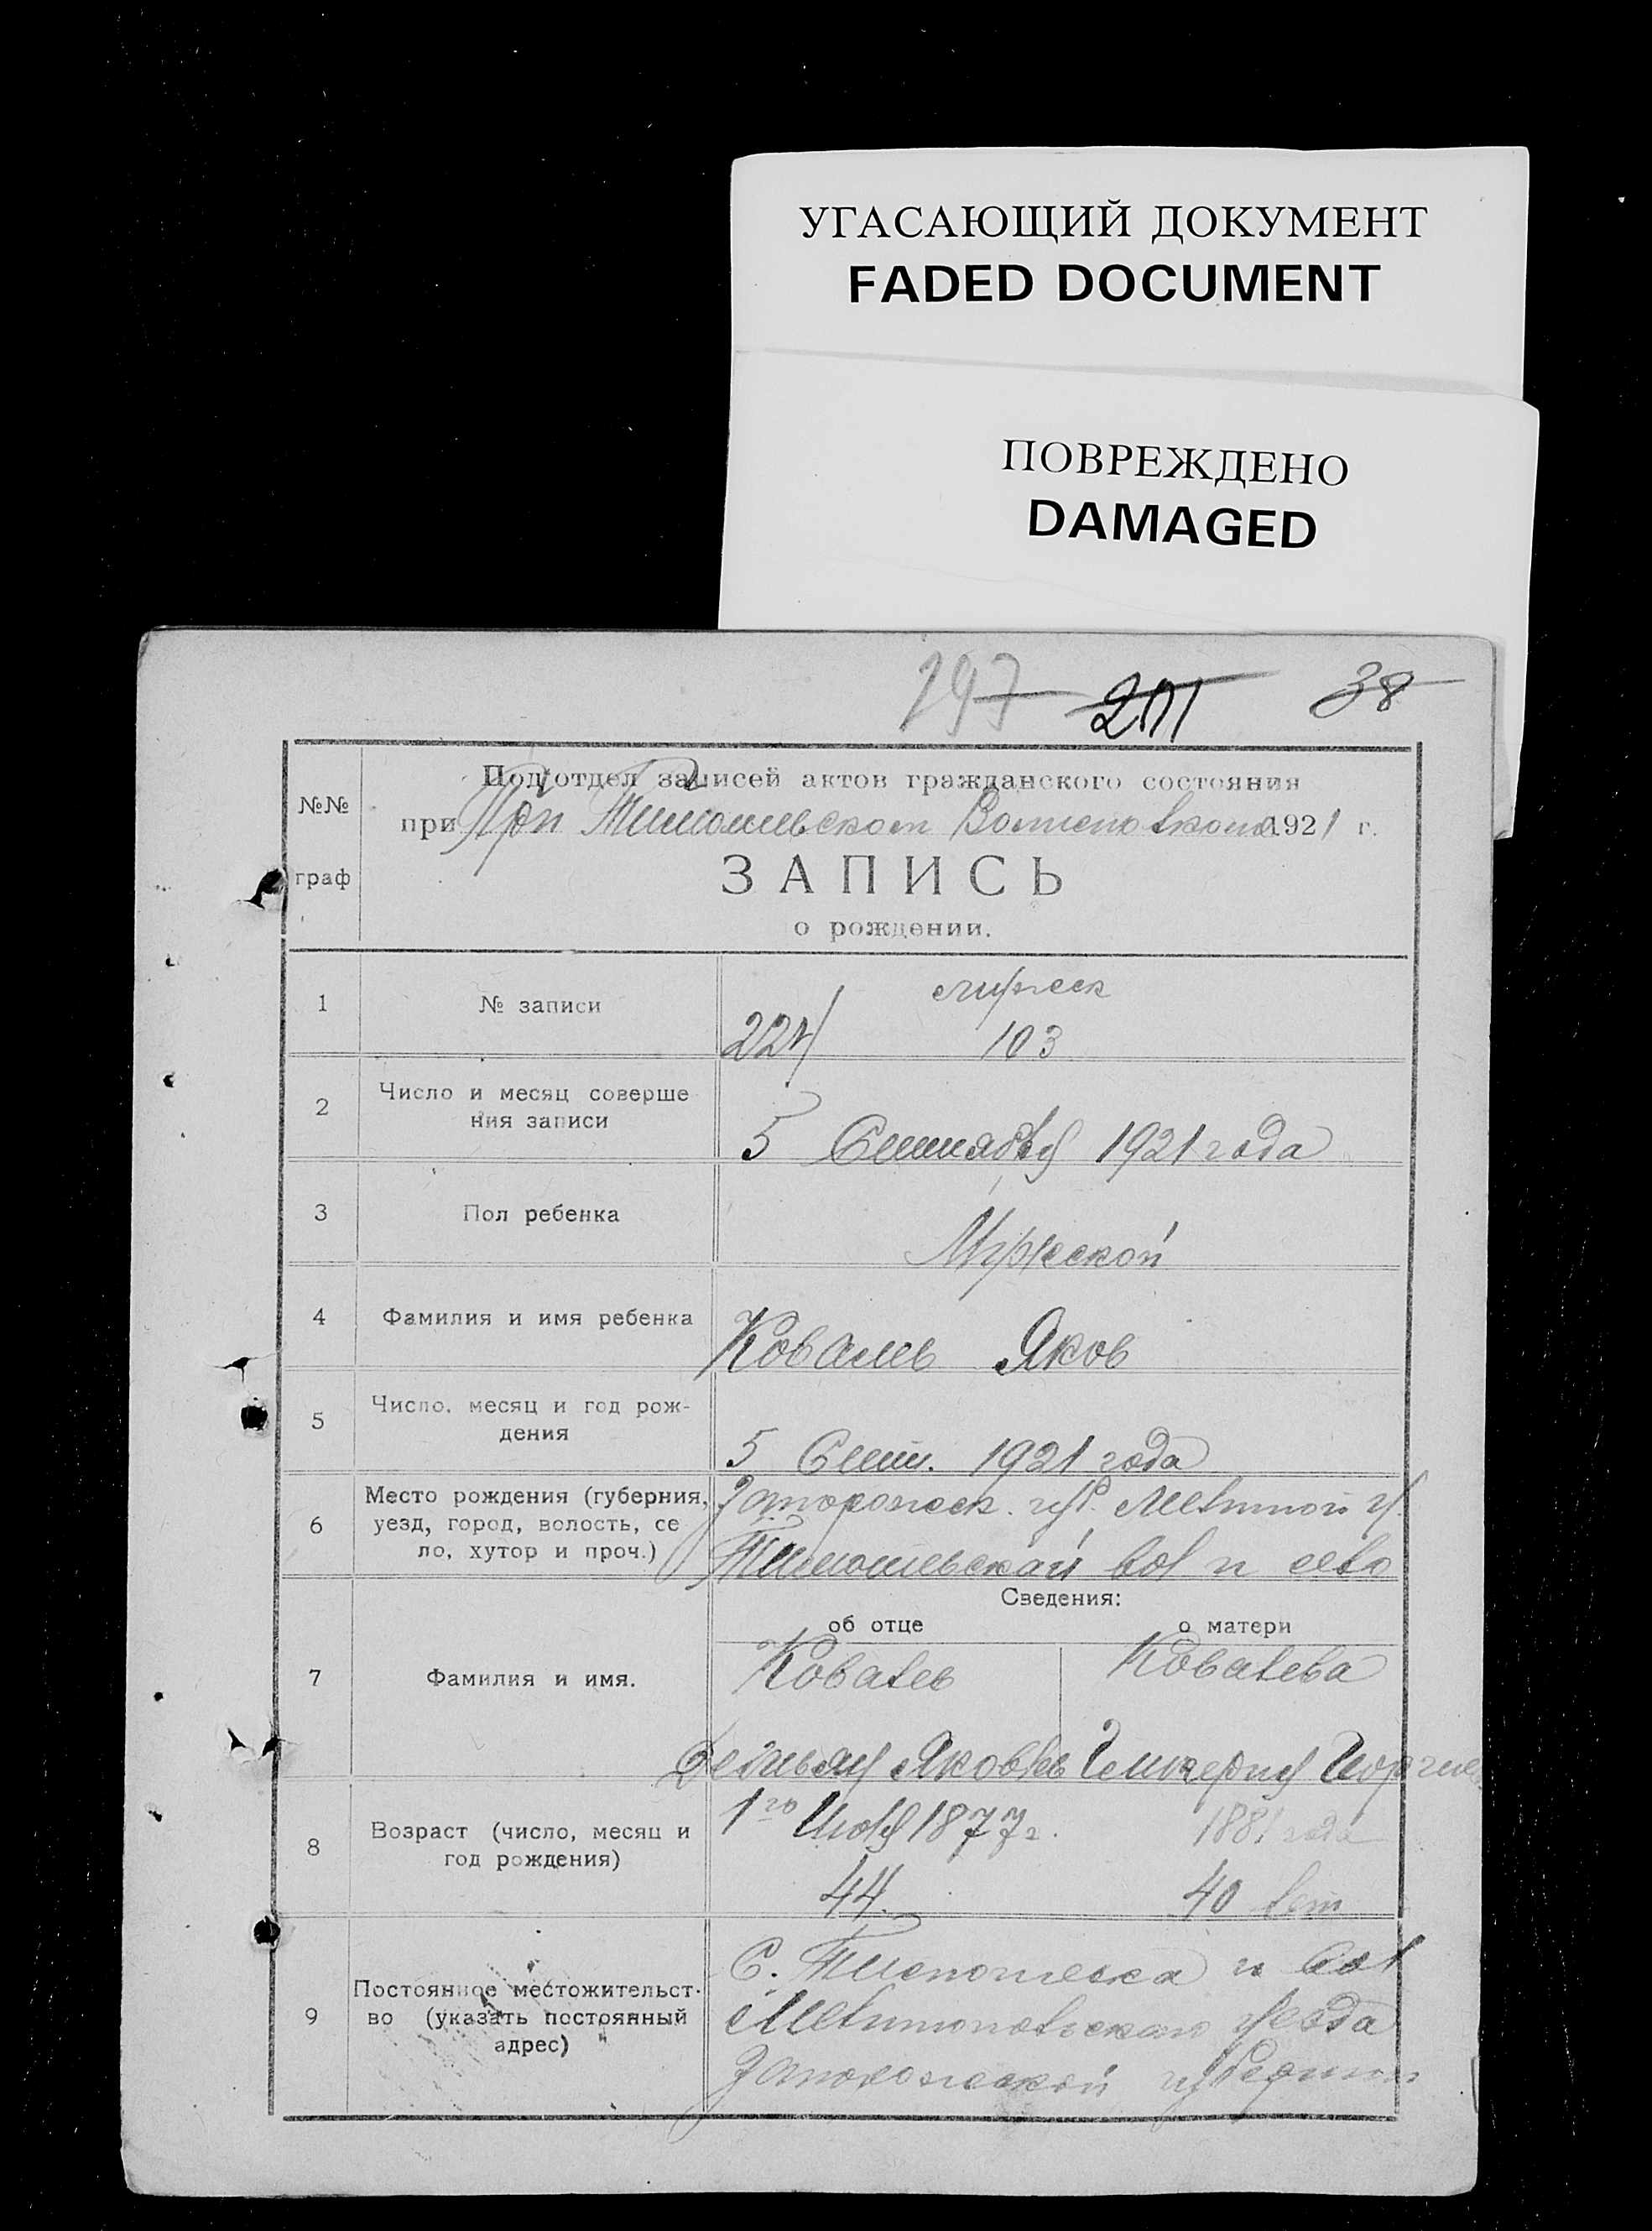 УГАСАЮЩИЙ ДОКУМЕНТ
FADED DOCUMENT
ПОВРЕЖДЕНО
DAMAGED
197 201 38
№№
граф
Подотдел записей актов гражданского состояния
при При Тимошевском 1921 г.
ЗАПИСЬ
о рождении.
1 № записи
мужеск
224/ 103
2 Число и месяц соверше
ния записи
5 Сентября 1921 года
3 Пол ребенка
Мужеской
4 Фамилия и имя ребенка Ковалев Яков
5 Число, месяц и год рож-
дения
5 Сент. 1921 года
6 Место рождения (губерния,
уезд, город, волость, се
ло, хутор и проч.)
Запорожск. губ. Мелитоп у.
Тимошевской вол и село
Сведения:
об отце о матери
7 Фамилия и имя.
Ковалев Ковалева
Демьян Яковлев Гликерия
8 Возраст (число, месяц и
год рождения)
1го Июля 1877 г. 1881 года
44. 40 лет
9 Постоянное местожительст-
во (указать постоянный
адрес)
С. Тимошевка и вол
Мелитопольскаго уезда
Запорожской губернии